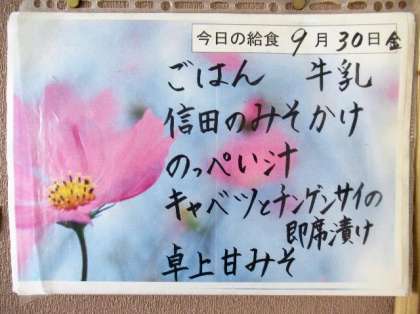 今日の給食 9月30日 金
ごはん 牛乳
信田のみそかけ
のっぺい汁
キャベツとチンゲンサイの
即席漬け
卓上甘みそ